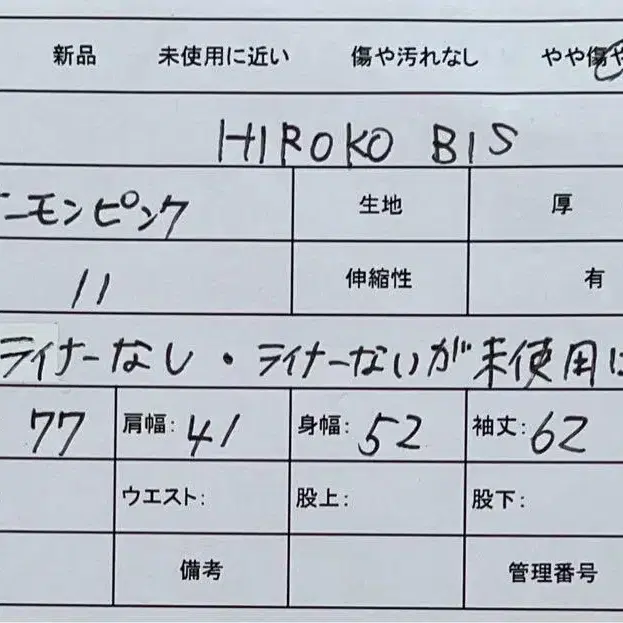 新品 未使用に近い 傷や汚れなし やや傷や
HIROKO BIS
ーモンピンク 生地 厚
11 伸縮性 有
ライナーなし・ライナーないが未使用に
77 肩幅: 41 身幅: 52 袖丈: 62
ウエスト: 股上: 股下:
備考 管理番号